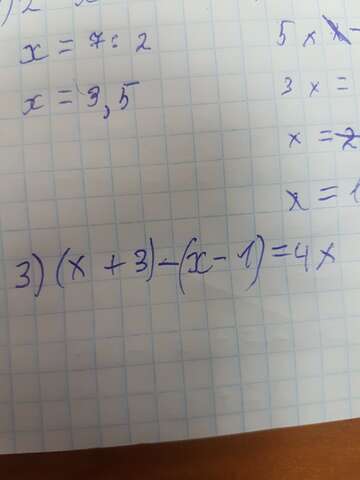 x = 7 : 2
x = 3,5
5 x
3 x =
x = 2
x = 1
3) (x + 3) - (x - 1) = 4x